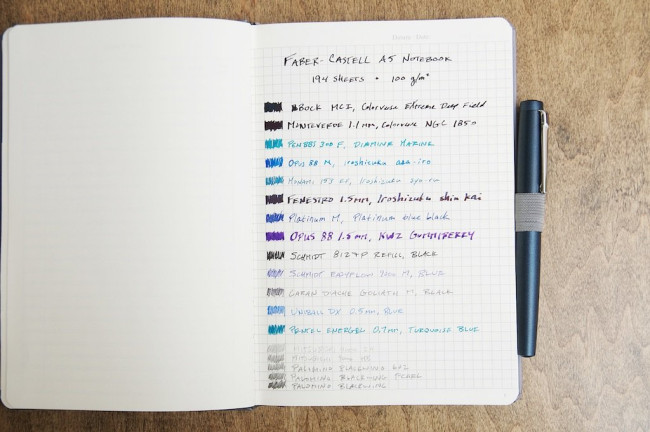 FABER-CASTELL A5 NOTEBOOK
194 SHEETS • 100 g/m²
BOCK MCI, Colorverse Extreme Deep Field
MONTEVERDE 1.1mm, Colorverse NGC 1850
PENBBS 300 F, DIAMINE MARINE
OPUS 88 M, iroshizuku asa-iro
F, Iroshizuku
FENESTRO 1.5mm, Iroshizuku shin kai
Platinum M, Platinum blue black
OPUS 88 1.5mm, KWZ GUMMIBERRY
SCHMIDT 8127 REFILL, BLACK
SCHMIDT EASYFLOW 9000 M, BLUE
CARAN D'ACHE GOLIATH M, BLACK
UNIBALL DX 0.5mm, BLUE
PENTEL ENERGEL 0.7mm, TURQUOISE BLUE
MITSUBISHI
MITSUBISHI
PALOMINO BLACKWING
PALOMINO BLACKWING PEARL
PALOMINO BLACKWING